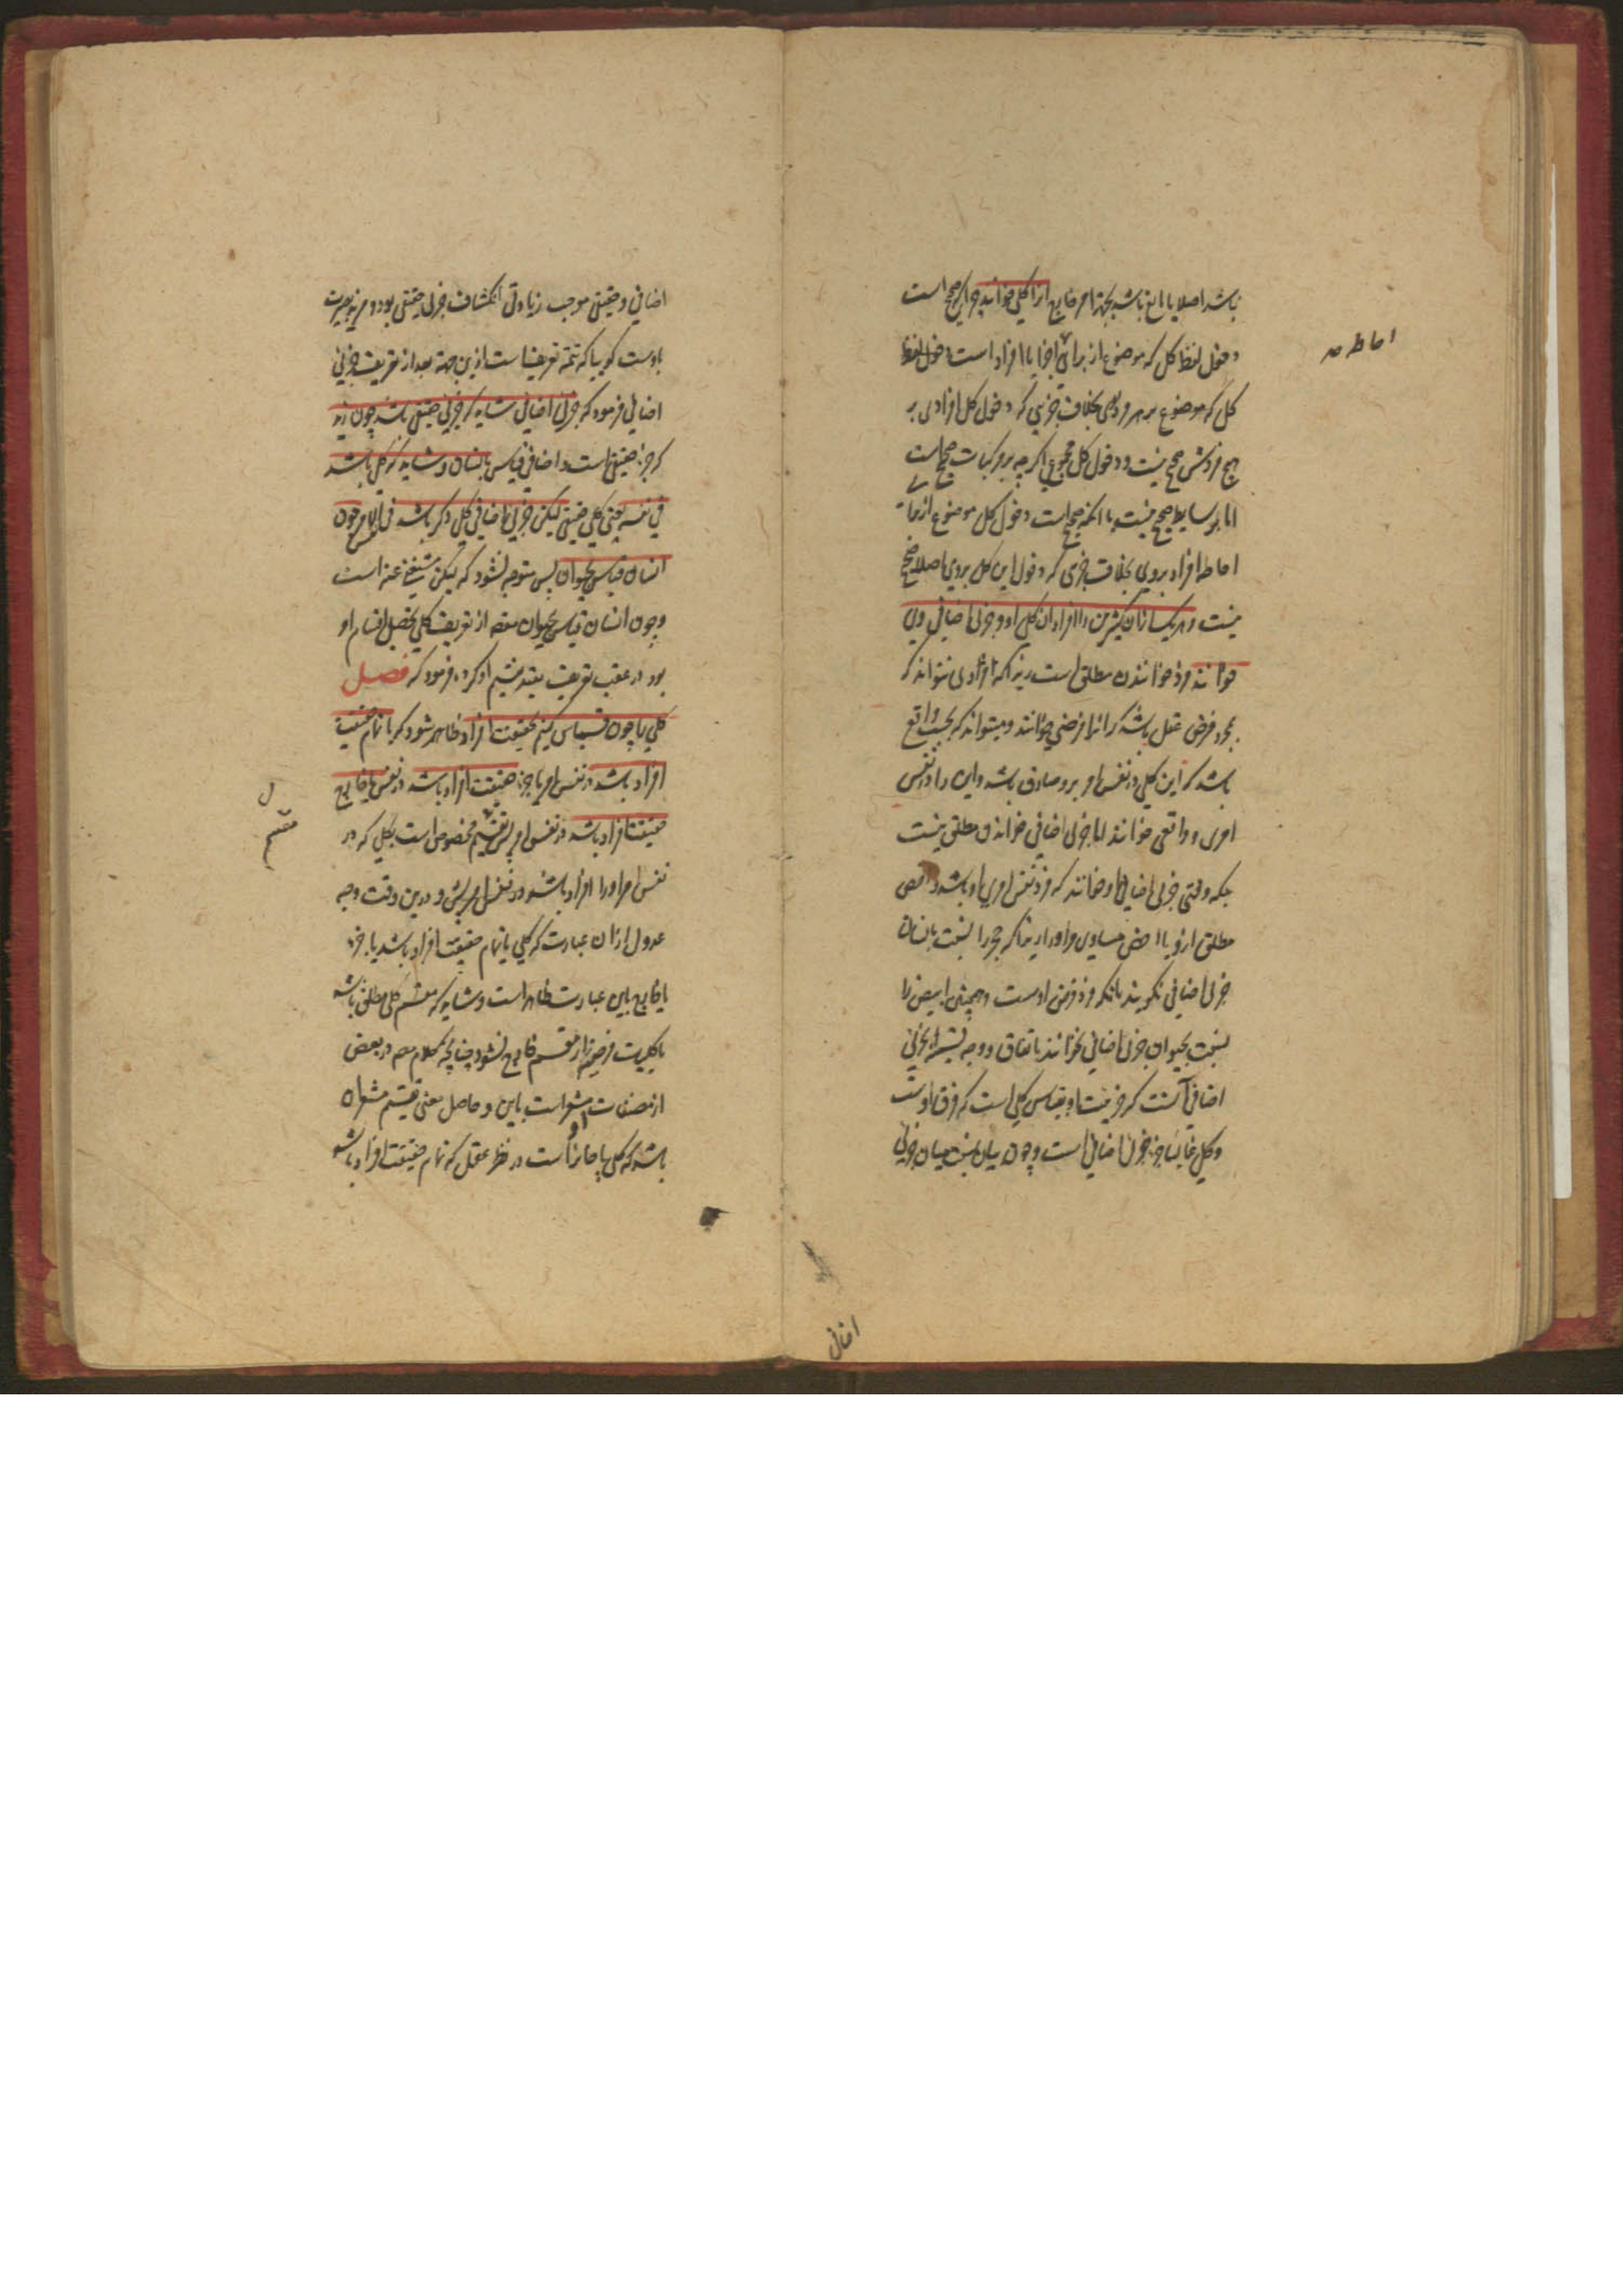 باشد اصلا یا مانع باشد بجهة امر خارج آنرا کلی خوانند چرا که صحیح است
دخول لفظ کل که موضوع از برای اجزا یا افراد است دخول لفظ
کل که موضوع بر هر فردی بخلاف جزیی که دخول کل افرادی بر
هیچ فردش صحیح نیست و دخول کل مجموعی اگر چه بر مرکبات صحیح است
اما بر بسایط صحیح نیست با آنکه صحیح است دخول کل موضوع از برای
احاطه افراد بروی بخلاف جزی که دخول این کل بروی اصلا صحیح
نیست و هر یک از آن کثیرین را افراد آن کلی او و جزئی اضافی وی
خوانند فرد خواندن مطلق است زیرا که افرادی میتواند که
بمجرد فرض عقل باشد که آنرا فرضی خوانند و میتواند که بحسب واقع
باشد که این کلی در نفس امر برو صادق باشد و این را فرد نفس
امری و واقعی خوانند اما جزئی اضافی خواندن مطلق نیست
بلکه وقتی جزئی اضافی او خوانند که فرد نفس امری او باشد و اخص
مطلق ازو یا اخص مساوی او را زیرا که حجر را نسبت بانسان
جزئی اضافی نگویند با آنکه فرد فرضی اوست و همچنین ابیض را
نسبت بحیوان جزئی اضافی نخوانند باتفاق و وجه تسمیه او بجزئی
اضافی آنست که جزئیت او بقیاس کلی است که فوق اوست
و کلی غالبا جزء جزئی اضافی است و چون بیان نسبت میان جزئی
احاطه صح
اضافی
اضافی و حقیقی موجب زیادتی انکشاف جزئی حقیقی بود و مزید بصیرت
باوست گویا که تتمه تعریف است ازین جهة بعد از تعریف جزئی
اضافی فرمود که جزئی اضافی شاید که جزئی حقیقی باشد چون زید
که جزء حقیقی است و اضافی قیاس بانسان و شاید که کلی باشد
فی نفسه یعنی کلی حقیقی لیکن جزئی اضافی کلی دیگر باشد فی نفس الامر چون
انسان قیاس بحیوان پس متوجه نشود که لیکن مستغنی عنه است
و چون انسان قیاس بحیوان مقصد از تعریف کلی تحصیل اقسام او
بود در عقب تعریف بیند تقسیم او کرده فرمود که فصل
کلی را چون قیاس کنیم بحقیقت افراد ظاهر شود که یا تمام حقیقت
افراد باشد در نفس امر یا جزء حقیقت افراد باشد در نفس امر یا خارج
حقیقت افراد باشد در نفس امر پس تقسیم مخصوص است بکلی که در
نفس امر او را افراد باشد و در نفس امر پس و درین وقت وجه
عدول از آن عبارت که کلی یا تمام حقیقت افراد باشد یا جزء
یا خارج باین عبارت ظاهر است و شاید که مقسم کلی مطلق باشد
تا کلیات فرضیه از مقسم خارج نشود چنانچه کلام مصر در بعض
از مصنفات او مشعر است باین و حاصل معنی تقسیم مشعر آن
باشد که کلی یا جایز است در نظر عقل که تمام حقیقت افراد باشد
مقسم